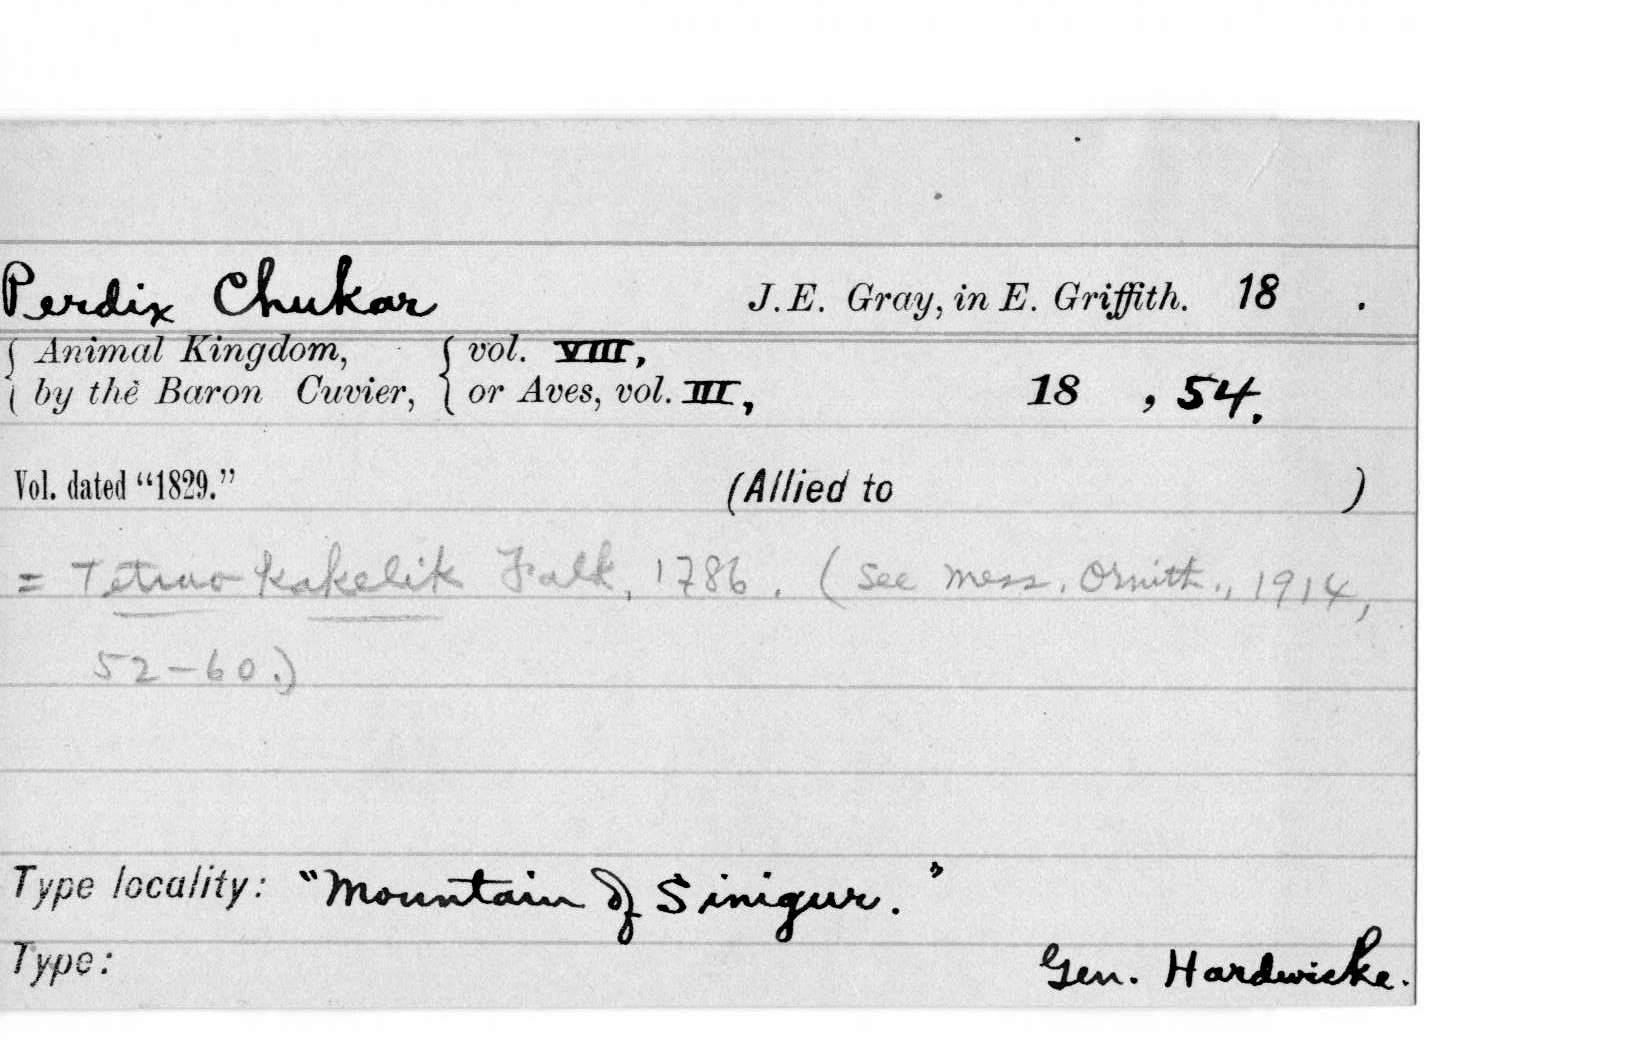 Perdix Chukar J. E. Gray, in E. Griffith. 18 .
{ Animal Kingdom, { vol. VIII,
{ by the Baron Cuvier, { or Aves, vol. III, 18 , 54.
Vol. dated “1829.” (Allied to )
= Tetrao kakelik Falk, 1786. (See Mess. Ornith., 1914,
52-60.)
Type locality: "Mountain of Sinigur."
Type: Gen. Hardwicke.